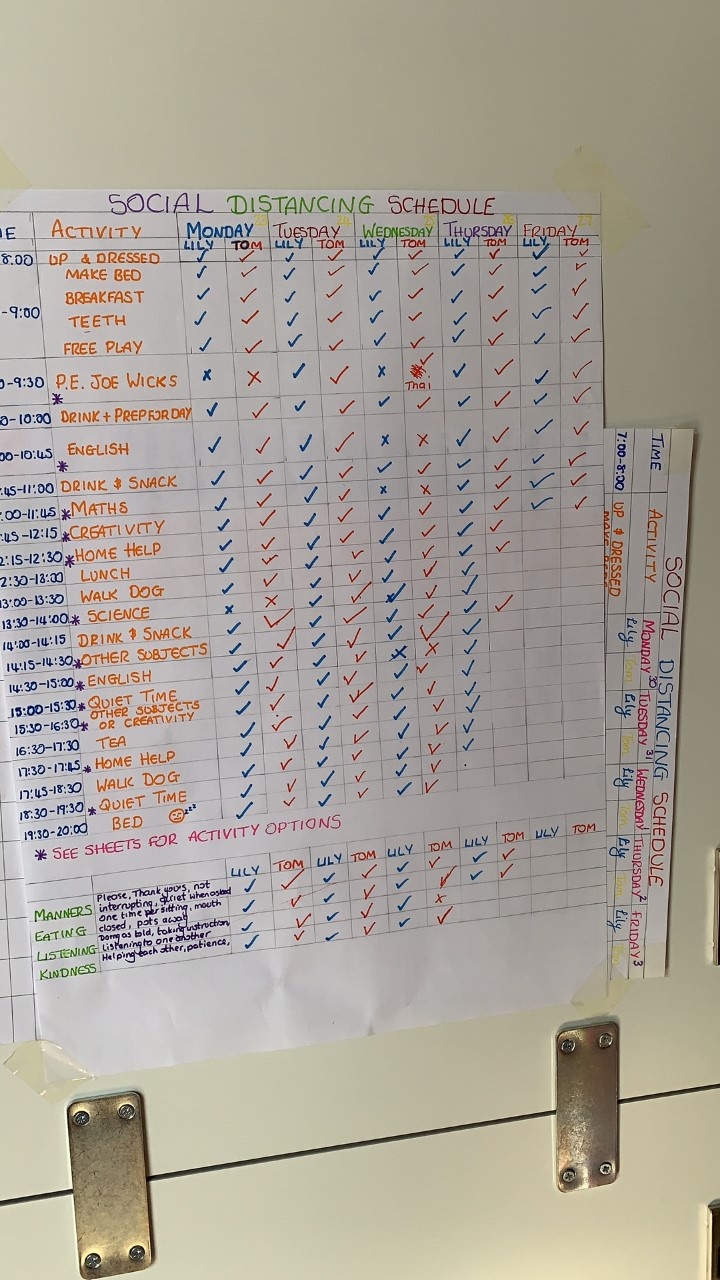 SOCIAL DISTANCING SCHEDULE
E ACTIVITY MONDAY 23 TUESDAY 24 WEDNESDAY 25 THURSDAY 26 FRIDAY 27
LILY TOM LILY TOM LILY TOM LILY TOM LILY TOM
8:00 UP & DRESSED ✓ ✓ ✓ ✓ ✓ ✓ ✓ ✓ ✓ ✓
MAKE BED ✓ ✓ ✓ ✓ ✓ ✓ ✓ ✓ ✓ ✓
BREAKFAST ✓ ✓ ✓ ✓ ✓ ✓ ✓ ✓ ✓ ✓
-9:00 TEETH ✓ ✓ ✓ ✓ ✓ ✓ ✓ ✓ ✓ ✓
FREE PLAY ✓ ✓ ✓ ✓ ✓ ✓ ✓ ✓ ✓ ✓
0-9:30 * P.E. JOE WICKS x x ✓ ✓ x ✓ Thai ✓ ✓ ✓ ✓
0-10:00 DRINK + PREP FOR DAY
00-10:45 * ENGLISH
:45-11:00 DRINK & SNACK
:00-11:45 * MATHS
:45-12:15 * CREATIVITY
2:15-12:30 * HOME HELP
2:30-13:00 LUNCH
13:00-13:30 WALK DOG
13:30-14:00 * SCIENCE
14:00-14:15 DRINK & SNACK
14:15-14:30 * OTHER SUBJECTS
14:30-15:00 * ENGLISH
15:00-15:30 * QUIET TIME
15:30-16:30 * OTHER SUBJECTS
OR CREATIVITY
16:30-17:30 TEA
17:30-17:45 * HOME HELP
17:45-18:30 WALK DOG
18:30-19:30 * QUIET TIME
19:30-20:00 BED zzz
* SEE SHEETS FOR ACTIVITY OPTIONS
LILY TOM LILY TOM LILY TOM LILY TOM LILY TOM
MANNERS Please, Thank yours, not
interrupting, quiet when asked
EATING One time per sitting, mouth
closed, pots away
LISTENING Doing as told, taking instruction,
Listening to one another
KINDNESS Helping each other, patience,
SOCIAL DISTANCING SCHEDULE
TIME ACTIVITY MONDAY 30 TUESDAY 31 WEDNESDAY THURSDAY 2 FRIDAY 3
Lily Tom Lily Tom Lily Tom Lily Tom Lily
7:00-8:00 UP & DRESSED